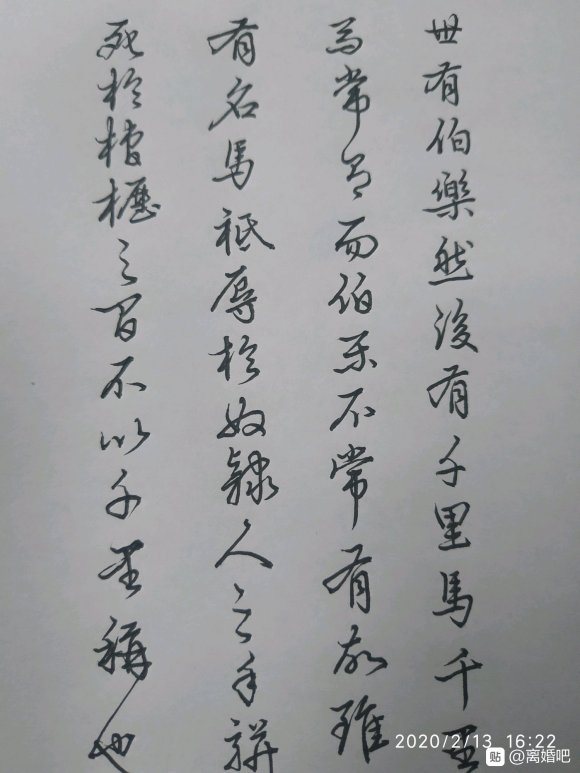 世有伯樂然後有千里馬千里
馬常有而伯乐不常有故雖
有名馬祗辱於奴隸人之手駢
死於槽櫪之間不以千里稱也
2020/2/13 16:22
贴 @离婚吧